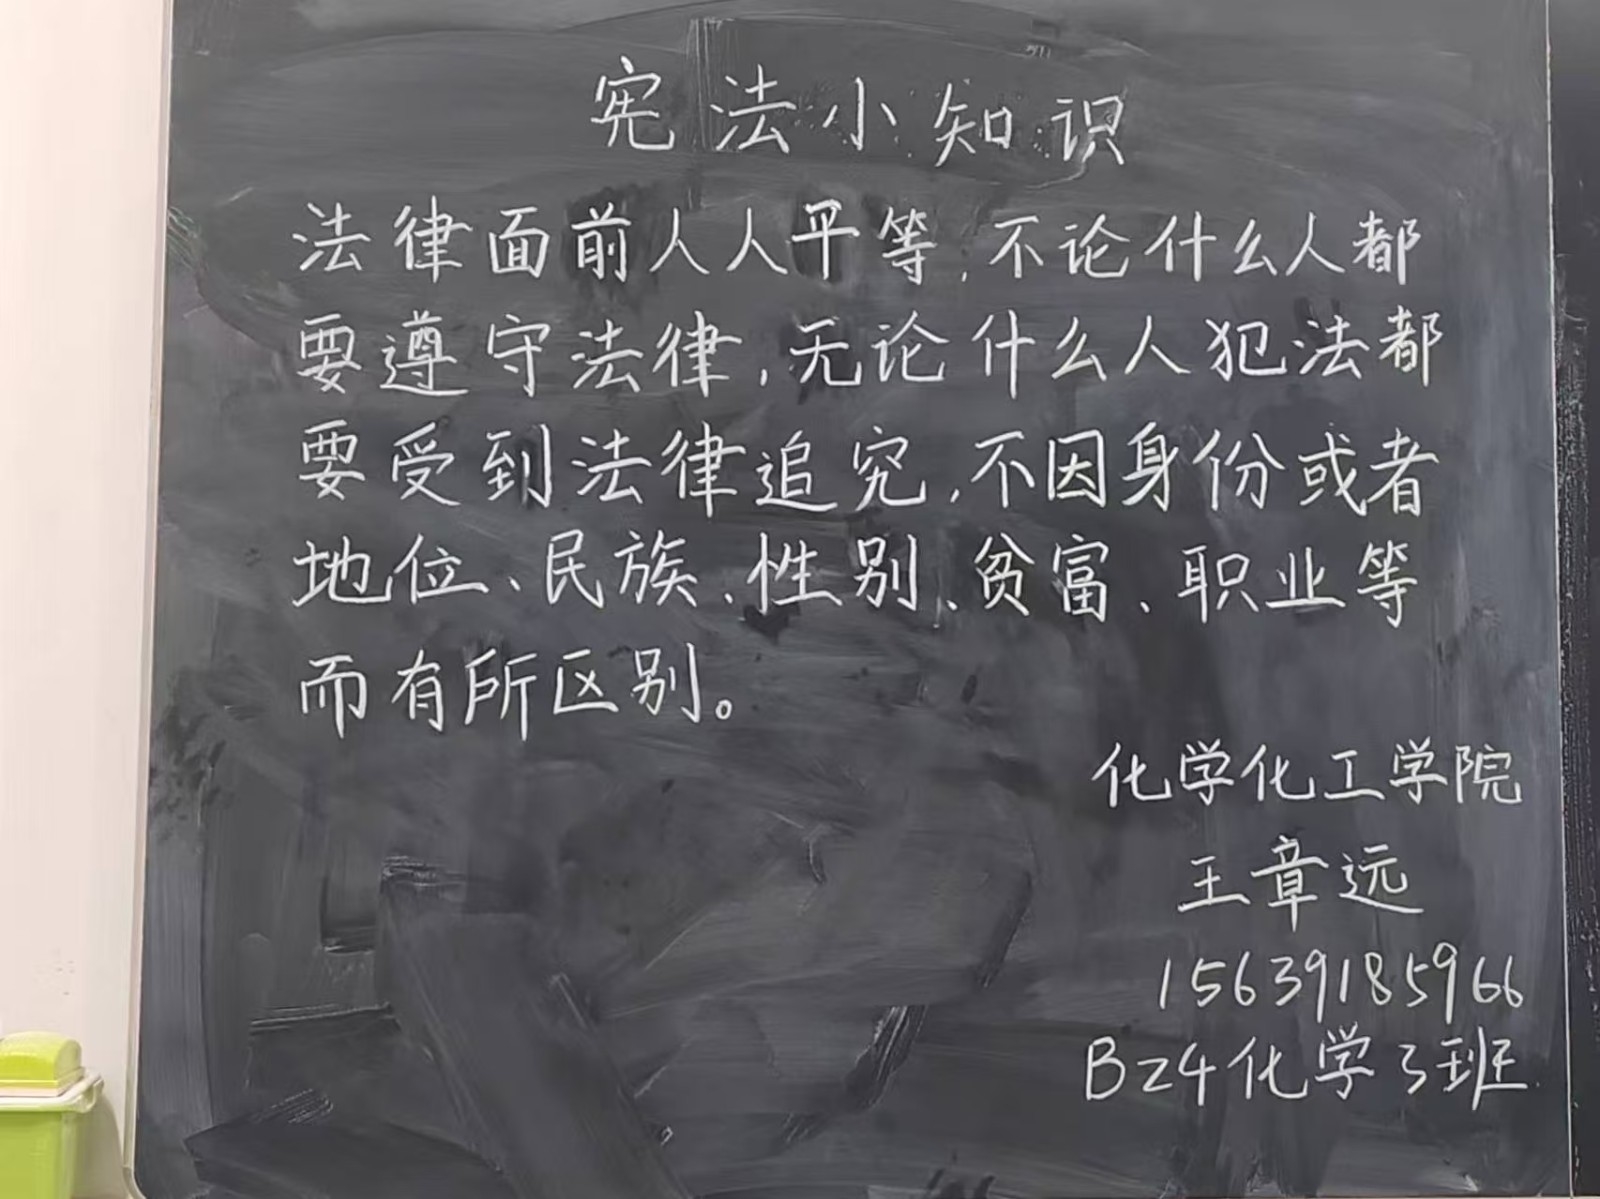 宪法小知识
法律面前人人平等,不论什么人都
要遵守法律,无论什么人犯法都
要受到法律追究,不因身份或者
地位、民族、性别、贫富、职业等
而有所区别。
化学化工学院
王章远
15639185966
B24化学3班